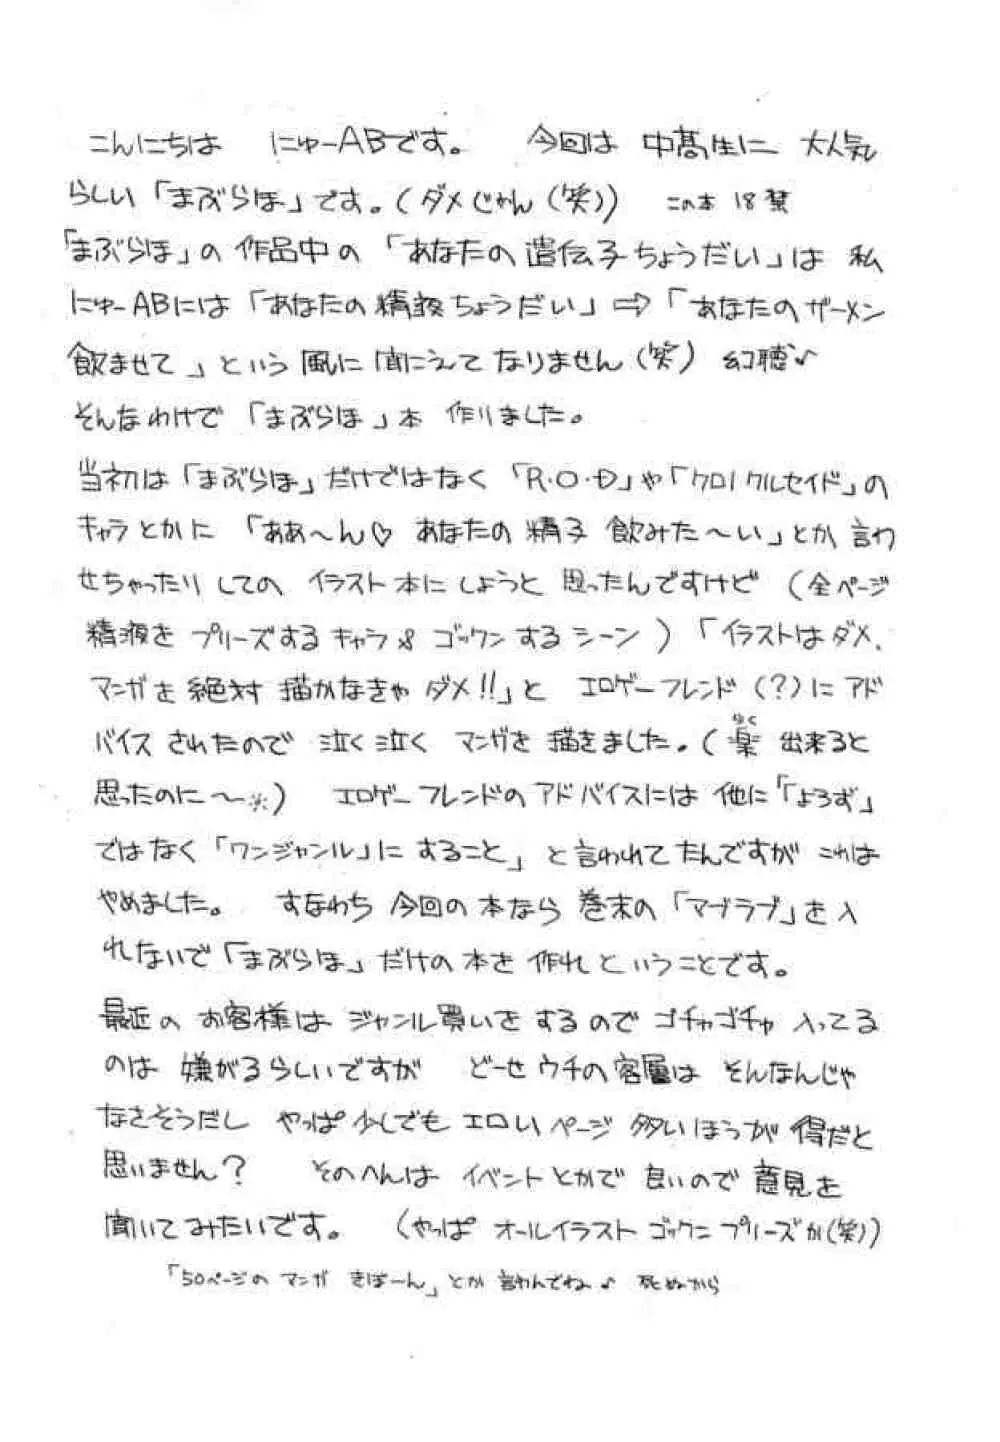 こんにちは にゅーABです。 今回は 中高生に 大人気
らしい「まぶらほ」です。(ダメじゃん(笑)) この本 18禁
「まぶらほ」の 作品中の 「あなたの遺伝子ちょうだい」は 私
にゅーABには 「あなたの精液ちょうだい」⇨「あなたのザーメン
飲ませて」という 風に 聞こえて なりません(笑) 幻聴♪
そんなわけで 「まぶらほ」本 作りました。
当初は「まぶらほ」だけではなく 「R・O・D」や「クロノクルセイド」の
キャラとかに 「ああ〜ん♡ あなたの 精子 飲みた〜い」とか 言わ
せちゃったり しての イラスト本に しようと 思ったんですけど (全ページ
精液を プリーズする キャラ& ゴックンするシーン) 「イラストはダメ、
マンガを 絶対 描かなきゃ ダメ!!」と エロゲーフレンド(?)に アド
バイス されたので 泣く泣く マンガを 描きました。(楽 出来ると
らく
思ったのに〜※) エロゲーフレンドのアドバイスには 他に「「よろず」
ではなく「ワンジャンル」に すること」 と言われてたんですが これは
やめました。 すなわち 今回の本なら 巻末の 「マブラブ」を 入
れないで「まぶらほ」だけの 本を 作れ ということです。
最近の お客様は ジャンル買いを するので ゴチャゴチャ 入ってる
のは 嫌がるらしいですが どーせウチの客層は そんなんじゃ
なさそうだし やっぱ少しでも エロいページ 多いほうが 得だと
思いません? そのへんは イベントとかで 良いので 意見を
聞いてみたいです。 (やっぱ オールイラスト ゴックン プリーズか(笑))
「50ページの マンガ きぼーん」とか 言わんでね♪ 死ぬから